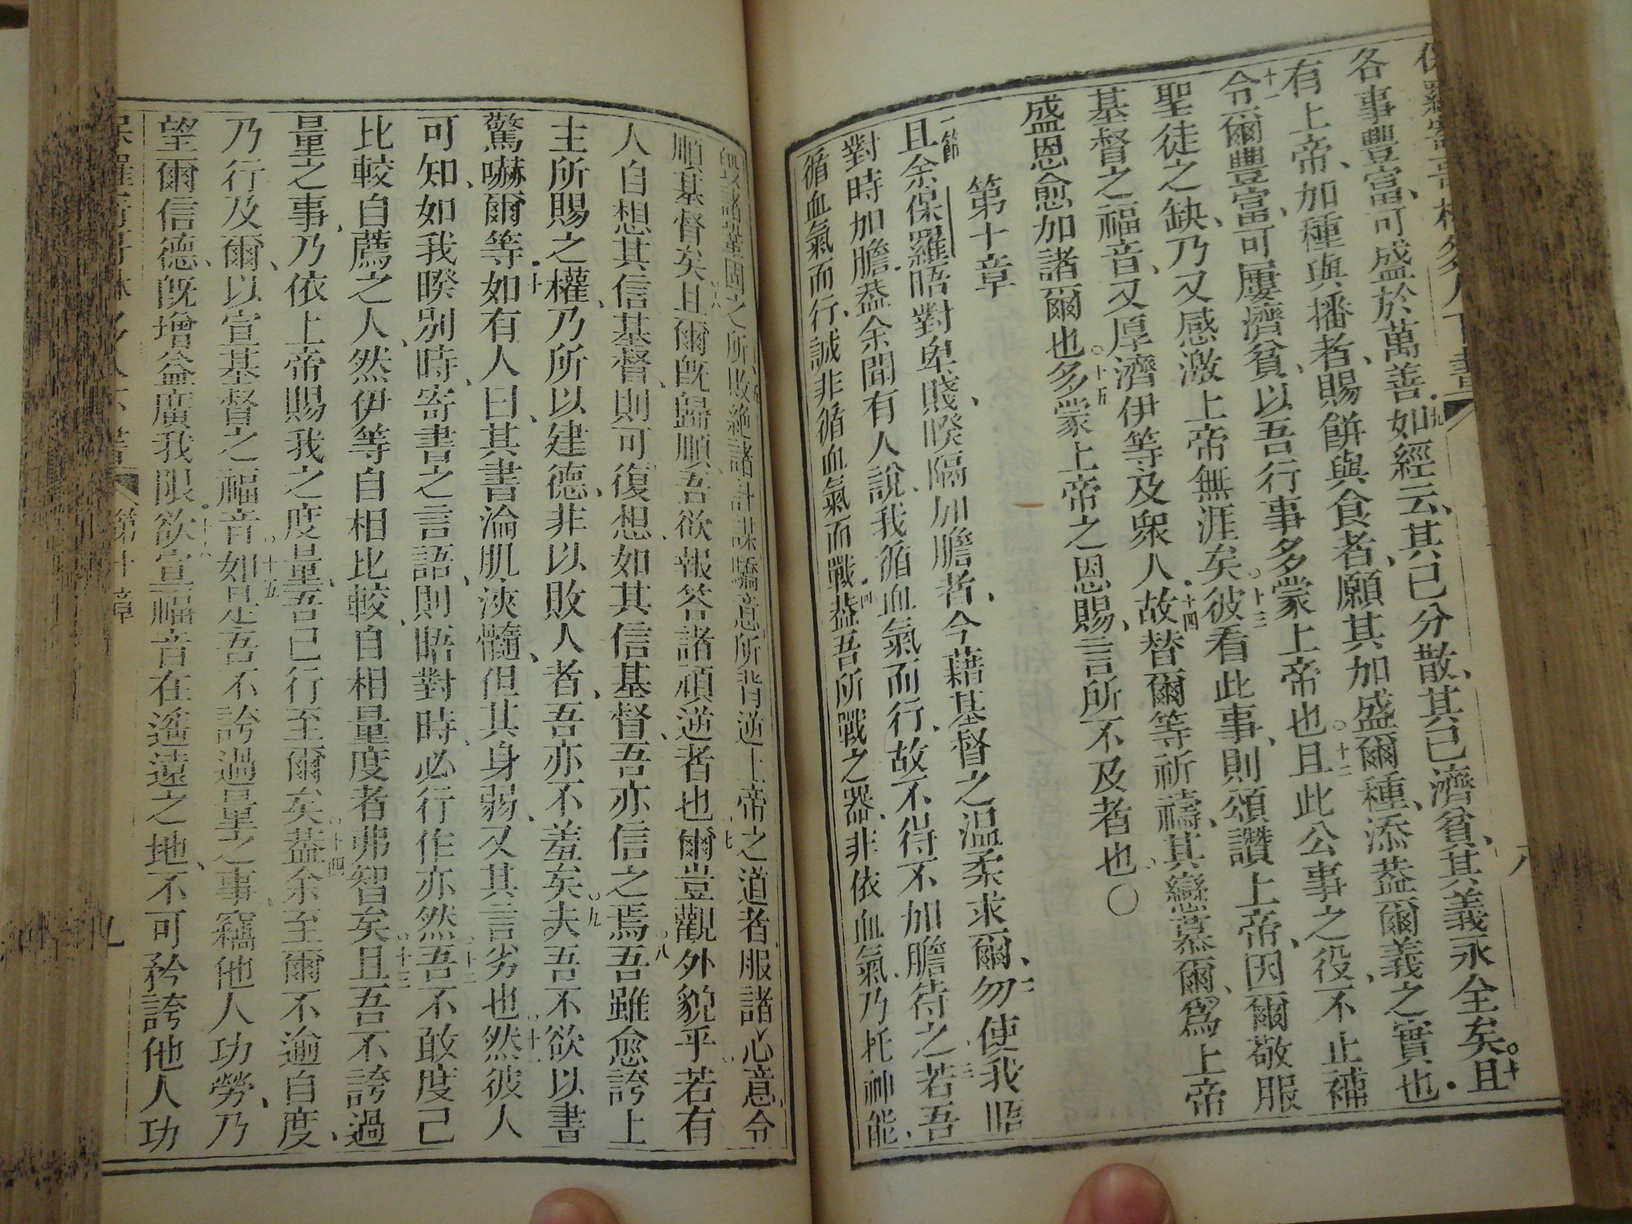 各事豐富、可盛於萬善。九如經云、其已分散、其已濟貧、其義永全矣。十且
有上帝、加種與播者、賜餅與食者、願其加盛爾種、添益爾義之實也。
十一令爾豐富、可屢濟貧、以吾行事多蒙上帝也。十二且此公事之役、不止補
聖徒之缺、乃又感激上帝無涯矣。十三彼看此事、則頌讚上帝、因爾敬服
基督之福音、又厚濟伊等及衆人。十四故替爾等祈禱、其戀慕爾、爲上帝
盛恩愈加諸爾也。十五多蒙上帝之恩賜、言所不及者也。〇
第十章
一節且余保羅晤對卑賤、暌隔加膽者、今藉基督之温柔求爾、二勿使我晤
對時加膽、葢余聞有人說、我循血氣而行、故不得不加膽待之。三若吾
循血氣而行、誠非循血氣而戰。四葢吾所戰之器、非依血氣、乃托神能、
所敗絶諸計謀驕意所背逆上帝之道者、服諸心意、令
順基督矣。六且爾旣歸順、吾欲報答諸頑逆者也。七爾豈觀外貌乎、若有
人自想其信基督、則可復想、如其信基督、吾亦信之焉。八吾雖愈誇上
主所賜之權、乃所以建德、非以敗人者、吾亦不羞矣。九夫吾不欲以書
驚嚇爾等。十如有人曰、其書淪肌浹髓、但其身弱、又其言劣也。十一然彼人
可知、如我暌别時、寄書之言語、則晤對時、必行作亦然。十二吾不敢度己
比較自薦之人、然伊等自相比較、自相量度者、弗智矣。十三且吾不誇過
量之事、乃依上帝賜我之度量、吾已行至爾矣。十四葢余至爾不逾自度、
乃行及爾、以宣基督之福音。十五如是吾不誇過量之事、竊他人功勞、乃
望爾信德、旣增益廣我限。十六欲宣福音在遙遠之地、不可矜誇他人功
第十章
九